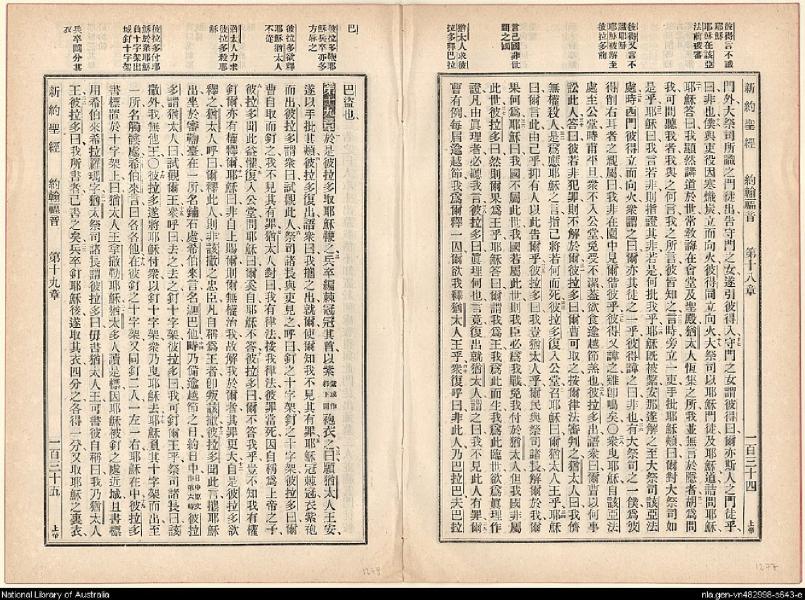 彼得言不識耶穌
耶穌在該亞法前被審
彼得又言不識耶穌
耶穌被解至彼拉多前
言己國非世間之國
猶太人求彼拉多釋巴拉
新約聖經 約翰福音 第十八章 一百三十四 上帝
門外大祭司所識之門徒出告守門之女遂引彼得入守門之女謂彼得曰爾亦斯人之門徒乎
曰非也僕與吏役因寒熾炭立而向火彼得同立向火大祭司以耶穌門徒及耶穌道詰問耶穌
耶穌答曰我顯然講道於世常教誨在會堂及聖殿猶太人恆集之所我並無言於隱者胡爲問
我可問聽我者我與之何言我之所言彼皆知之言時旁立一吏手批耶穌頰曰爾對大祭司如
是乎耶穌曰我言若非則指證其非若是何批我乎耶穌旣被繫安那遂解之至大祭司該亞法
處時西門彼得立而向火衆謂之曰爾亦其徒之一乎彼得諱之曰非也有大祭司之一僕爲彼
得削右耳者之親屬曰我非在園中見爾偕彼乎彼得又諱之雞卽鳴矣〇衆曳耶穌自該亞法
處至公堂時甫平旦衆不入公堂免受不潔蓋欲食逾越節羔也彼拉多出語衆曰爾曹以何事
訟此人答曰彼若非犯罪則不解於爾彼拉多曰爾曹可取之按爾律法審判之猶太人曰我儕
無權殺人是爲應耶穌之言指己將若何而死彼拉多復入公堂召耶穌曰爾猶太人王乎耶穌
曰爾言此由己乎抑有人以此告爾乎彼拉多曰我豈猶太人乎爾民與祭司諸長解爾於我爾
果何爲耶穌曰我國不屬此世我國若屬此世則我臣必爲我戰免我付於猶太人但我國非屬
此世彼拉多曰然則爾果爲王乎耶穌答曰爾謂我爲王我爲此而生我爲此臨世欲爲眞理作
證凡由眞理者必聽我言彼拉多曰眞理何也言竟復出就猶太人謂之曰我不見此人有罪爾
曹有例每届逾越節我爲爾釋一囚爾欲我釋猶太人王乎衆復呼曰非此人乃巴拉巴夫巴拉
巴
彼拉多鞭耶穌兵卒亦多方辱之
彼拉多欲釋耶穌猶太人不從
猶太人力求彼拉多殺耶穌
彼拉多付耶穌於衆耶穌負十字架出城釘十字架
兵卒鬮分其衣
新約聖經 約翰福音 第十九章 一百三十五 上帝
巴盜也
第十九章於是彼拉多取耶穌鞭之兵卒編棘冕冠其首以紫袍衣之曰願猶太人王安
遂以手批其頰彼拉多復出語衆曰我攜之出就爾使爾知我不見其有罪耶穌冠棘冕衣紫袍
而出彼拉多謂衆曰試觀此人祭司諸長與吏見之呼曰釘之十字架釘之十字架彼拉多曰爾
曹自取而釘之我不見其有罪猶太人對曰我有律法按我律法彼罪當死因自稱爲上帝之子
彼拉多聞此益懼復入公堂問耶穌曰爾奚自耶穌不答彼拉多曰爾不答我乎豈不知我有權
釘爾亦有權釋爾耶穌曰非自上賜爾則爾無權治我故解我於爾者其罪更大自是彼拉多欲
釋之猶太人呼曰爾釋此人則非該撒之忠臣凡自稱爲王者卽叛該撒彼拉多聞此言攜耶穌
出坐於審鞫臺在一所名鋪石處希伯來言名迦巴他時乃備逾越節之日約日中彼拉
多謂猶太人曰試觀爾王衆呼曰去之去之釘十字架彼拉多曰我可釘爾王乎祭司諸長曰該
撒外我無他王〇彼拉多遂將耶穌付衆以釘十字架衆乃曳耶穌去耶穌負其十字架而出至
一所名髑髏處希伯來言曰各各他在彼釘之十字架又同釘二人一左一右耶穌在中彼拉多
書標置於十字架上曰猶太人王拿撒勒耶穌猶太多人讀是標因耶穌被釘之處近城且書標
用希伯來希拉羅瑪字猶太祭司諸長謂彼拉多曰毋書猶太人王可書彼自稱曰我乃猶太人
王彼拉多曰我所書者已書之矣兵卒釘耶穌後遂取其衣四分之各得一分又取耶穌之裏衣
National Library of Australia
nla.gen-vn482998-s643-e